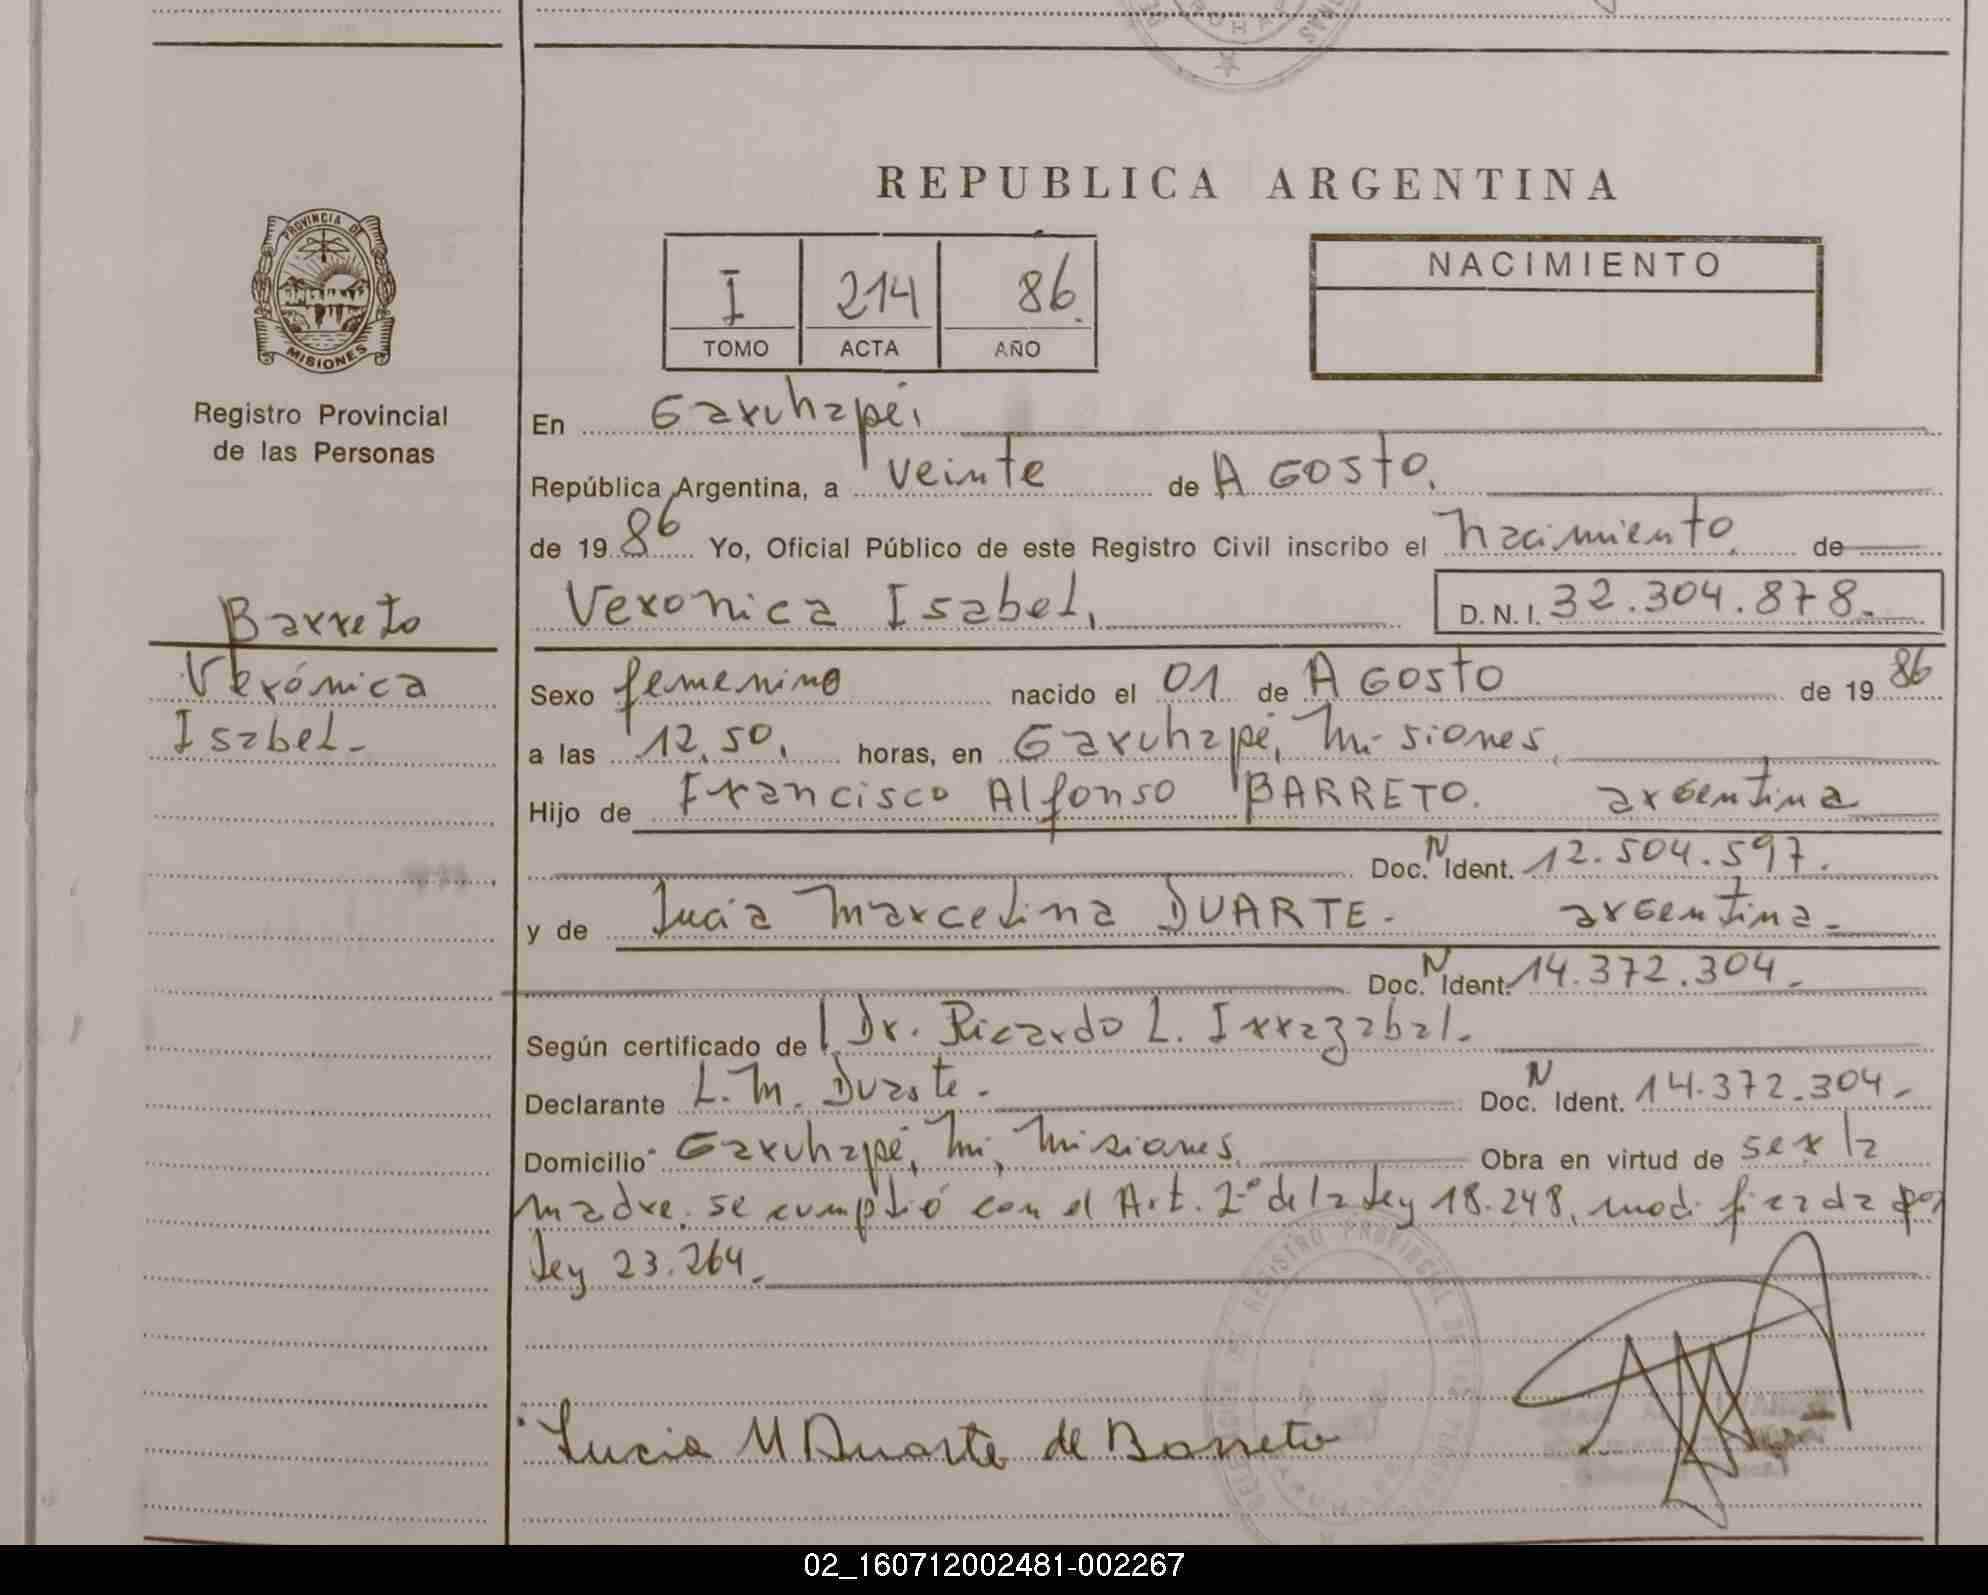 REPUBLICA ARGENTINA
PROVINCIA DE
MISIONES
Registro Provincial
de las Personas
I 214 86.
TOMO ACTA AÑO
NACIMIENTO
En Garuhapé,
República Argentina, a veinte de AGosto,
de 19 86 Yo, Oficial Público de este Registro Civil inscribo el nacimiento de
Veronica Isabel, D.N.I. 32.304.878.
Barreto
Verónica
Isabel-
Sexo femenino nacido el 01 de AGosto de 19 86
a las 12,50, horas, en Garuhapé, Mi- siones,
Hijo de Francisco Alfonso BARRETO. argentina
Doc. N Ident. 12.504.597.
y de Lucia Marcelina DUARTE. argentina.
Doc. N Ident. 14.372.304.
Según certificado de Dr. Ricardo L. Irrazabal.
Declarante L. M. Duarte. Doc. N Ident. 14.372.304.
Domicilio Garuhapé, Mi, Misiones, Obra en virtud de ser la
madre. se cumplió con el Art. 2º de la Ley 18.248, modificada por
Ley 23.264.
REGISTRO PROVINCIAL DE LAS
Lucia M Duarte de Barreto
02_160712002481-002267